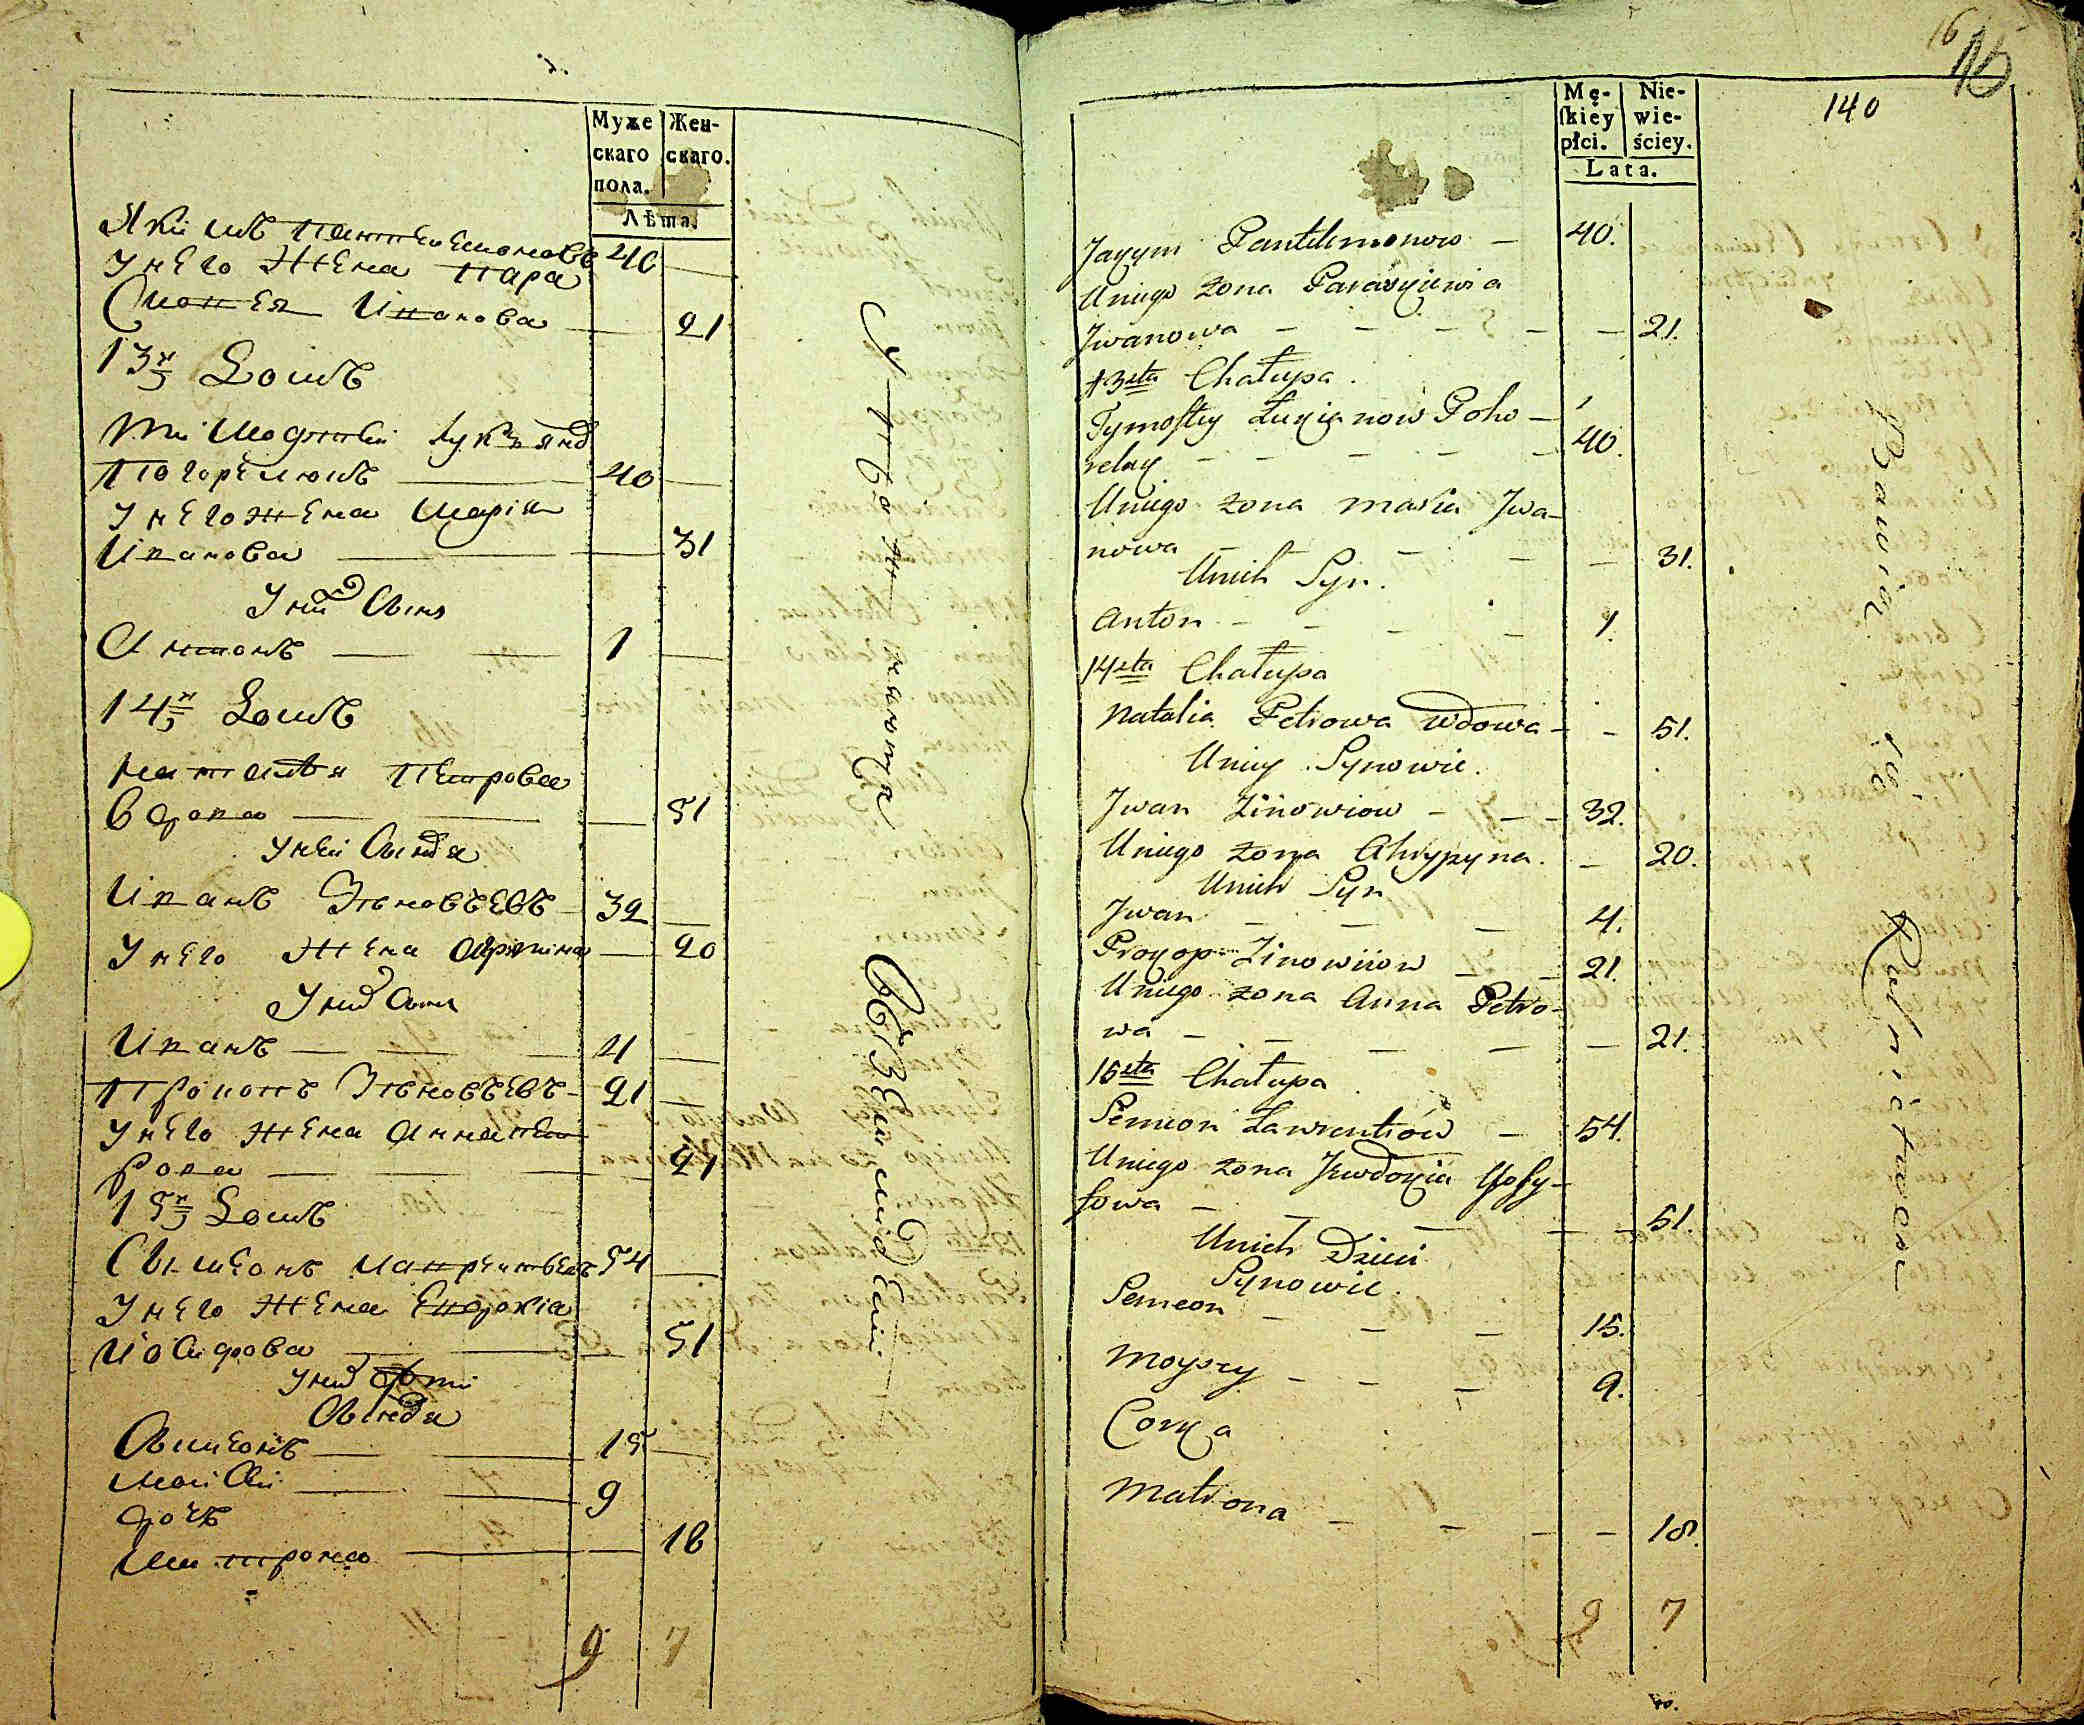 Муже
скаго
пола.
Жен-
скаго.
Лѣта.
Якимъ Пантелемоновъ 40
У него жена Пара
Сковея Иванова 21
13й Домъ
Тимофтей Лукъяновъ
Погорелюкъ 40
У него жена Марія
Иванова 31
У них Сынъ
Антонъ 1
14й Домъ
Наталья Петрова
Вдова 51
У ней Сыновья
Иванъ Зѣновъевъ 32
У него жена Агрипина 20
У них Сынъ
Иванъ 4
Прокопъ Зѣновъевъ 21
У него жена Анна Пет
рова 21
15й Домъ
Сымеонъ Лаврентьевъ 54
У него жена Евдокіа
Иосифова 51
У них Дети
Сыновья
Сымеонъ 15
Мойсей 9
Дочь
Матрона 18
9 7
Упражняются
в Земледелии
16
15
140
Mę-
skiey
płci.
Nie-
wie-
ściey.
Lata.
Jakym Pantelimonow - 40.
Uniego żona Paraskiewia
Jwanowa - - - - - 21.
13sta Chałupa.
Tymoftey Łukianow Poho-
relak - - - - - 40.
Uniego żona Maria Jwa-
nowa - - - - - 31.
Unich Syn.
Anton - - - - 1.
14sta Chałupa
Natalia Petrowa Wdowa - - 51.
Uniey Synowie.
Jwan Zinowiow - - - 32.
Uniego żona Ahrypyna. - 20.
Unich Syn
Jwan - - - 4.
Prokop Zinowiiow - - 21.
Uniego żona Anna Petro-
wa - - - - - 21.
15sta Chałupa
Semeon Ławrentiow - 54.
Uniego żona Jewdokia Yosy-
fowa - - - - - 51.
Unich Dzieci
Synowie.
Semeon - - - 15.
Moysey - - - 9.
Corka
Matrona - - - - 18.
9 7
Bawią się Rolnictwem